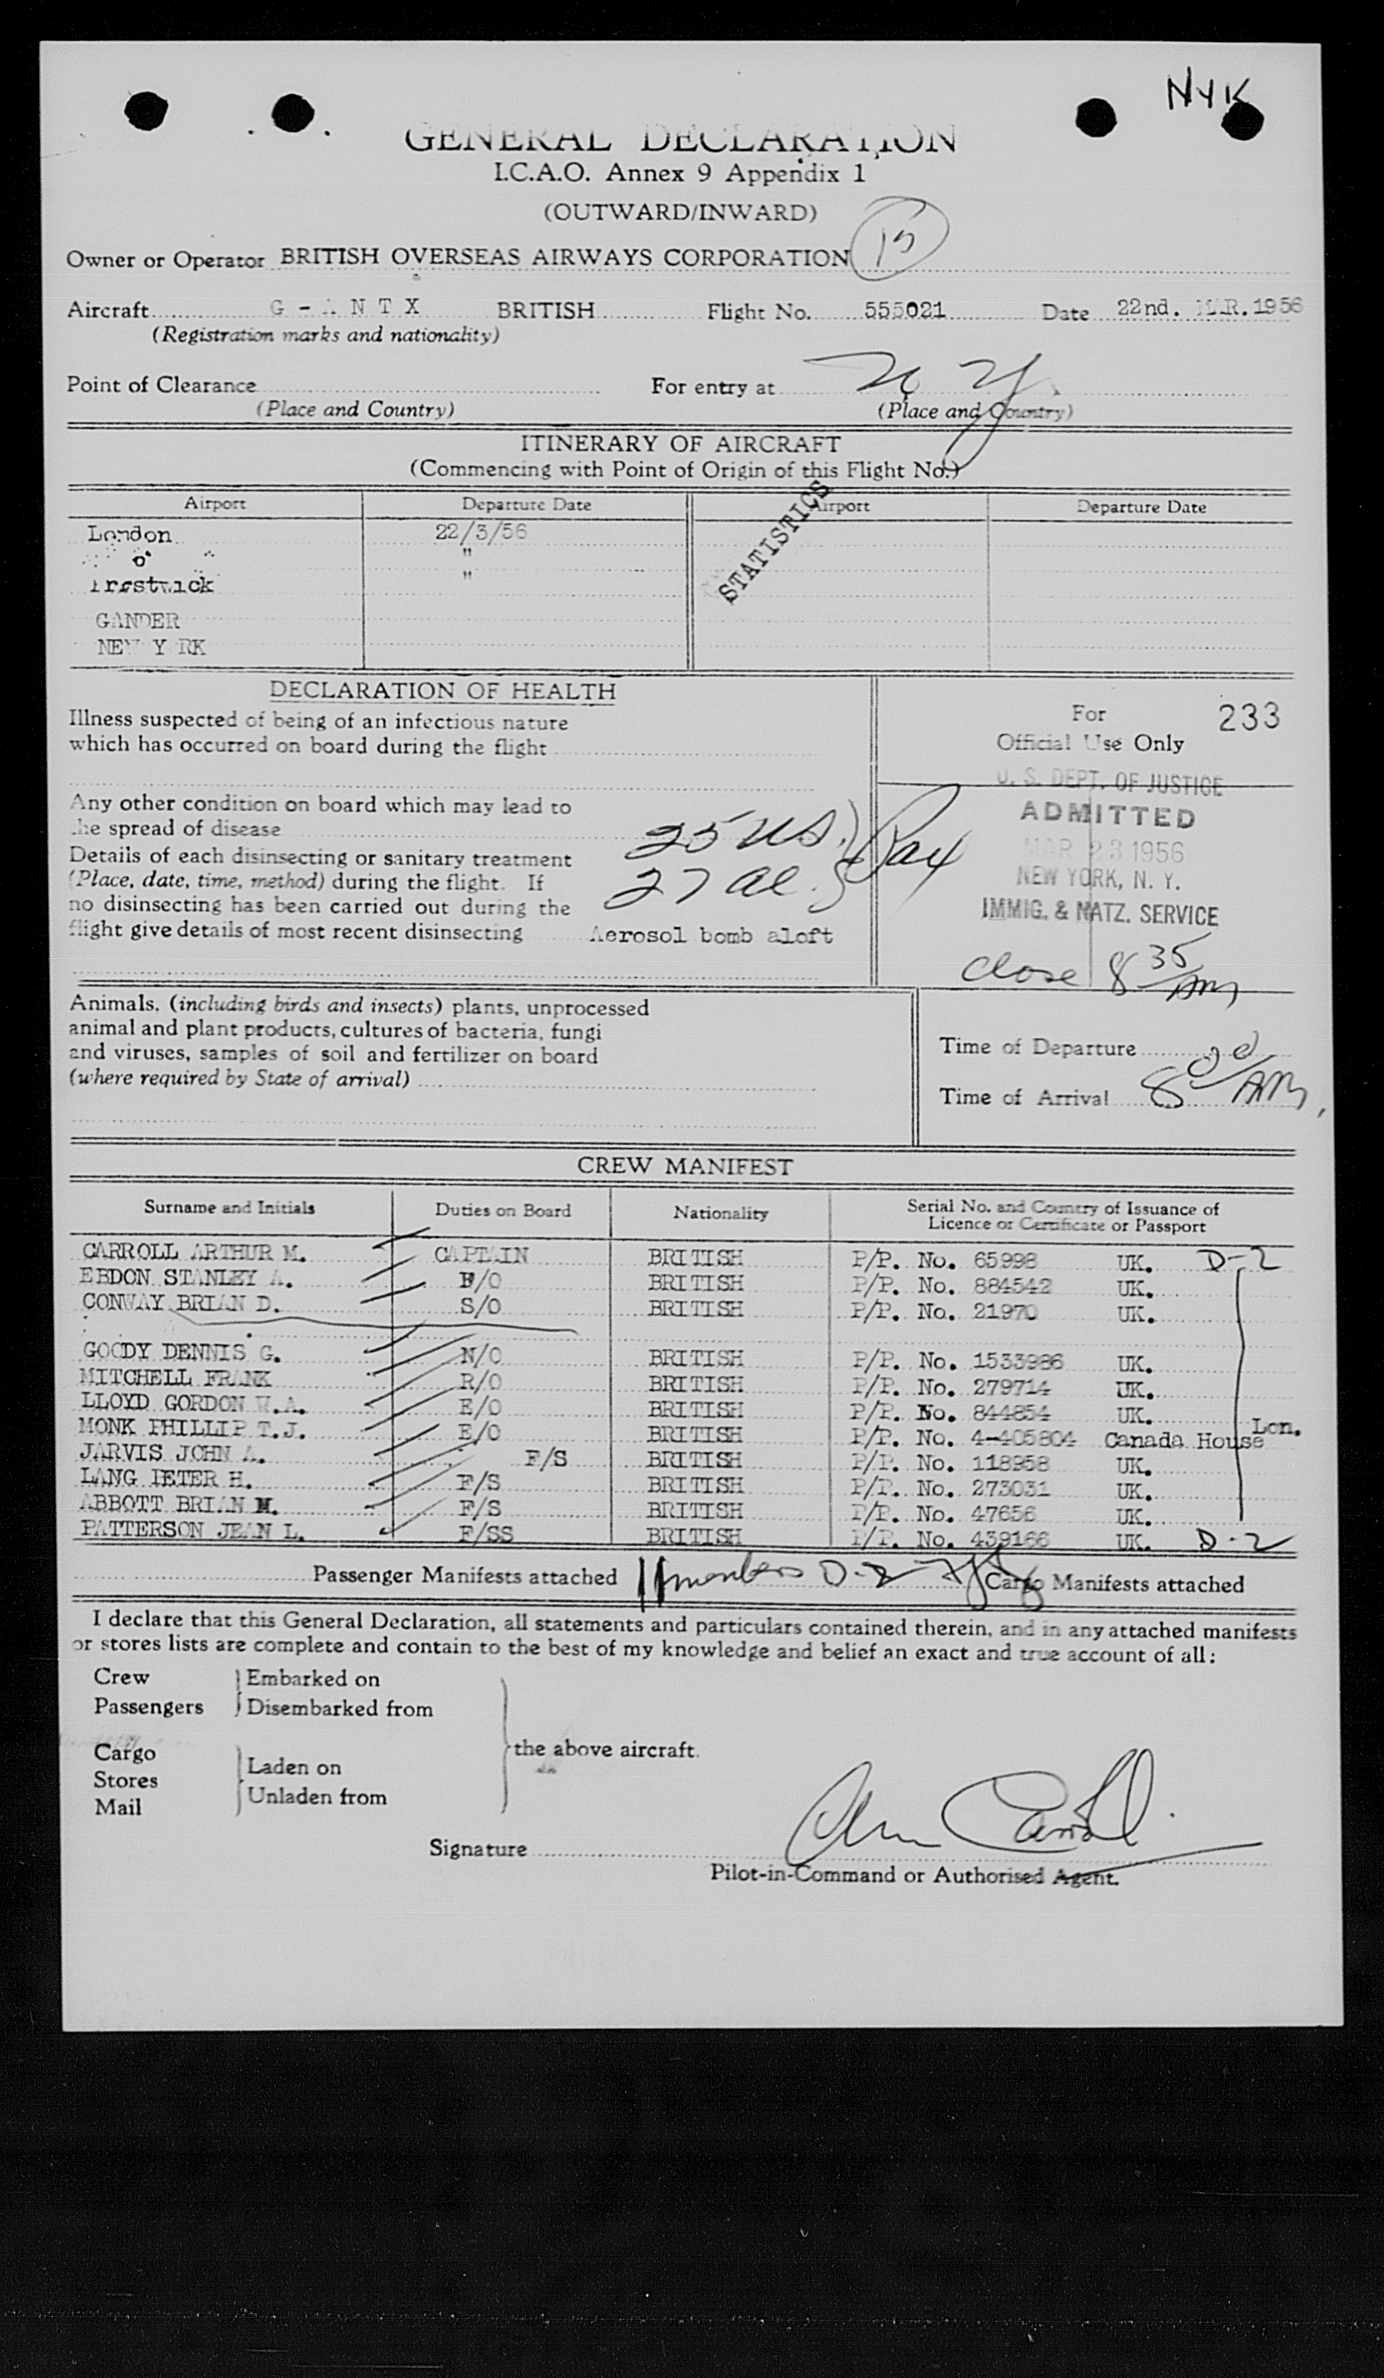 NYK
GENERAL DECLARATION
I.C.A.O. Annex 9 Appendix 1
(OUTWARD/INWARD)
15
Owner or Operator BRITISH OVERSEAS AIRWAYS CORPORATION
Aircraft G - A N T X BRITISH Flight No. 555021 Date 22nd. MAR. 1956
(Registration marks and nationality)
Point of Clearance For entry at N Y
(Place and Country) (Place and Country)
ITINERARY OF AIRCRAFT
(Commencing with Point of Origin of this Flight No.)
Airport Departure Date Airport Departure Date
STATISTICS
London 22/3/56
"
Prestwick "
GANDER
NEW YORK
DECLARATION OF HEALTH
Illness suspected of being of an infectious nature
which has occurred on board during the flight
For 233
Official Use Only
U. S. DEPT. OF JUSTICE
ADMITTED
MAR 23 1956
NEW YORK, N. Y.
IMMIG. & NATZ. SERVICE
close 8 35 AM
Any other condition on board which may lead to
the spread of disease
25 US.
27 al. } Pax
Details of each disinsecting or sanitary treatment
(Place, date, time, method) during the flight. If
no disinsecting has been carried out during the
flight give details of most recent disinsecting Aerosol bomb aloft
Animals, (including birds and insects) plants, unprocessed
animal and plant products, cultures of bacteria, fungi
and viruses, samples of soil and fertilizer on board
(where required by State of arrival)
Time of Departure
Time of Arrival 8 00 AM,
CREW MANIFEST
Surname and Initials Duties on Board Nationality Serial No. and Country of Issuance of
Licence or Certificate or Passport
CARROLL ARTHUR M. CAPTAIN BRITISH P/P. No. 65998 UK. D-2
EBDON STANLEY A. F/O BRITISH P/P. No. 884542 UK.
CONWAY BRIAN D. S/O BRITISH P/P. No. 21970 UK.
GOODY DENNIS G. N/O BRITISH P/P. No. 1533986 UK.
MITCHELL FRANK R/O BRITISH P/P. No. 279714 UK.
LLOYD GORDON W.A. E/O BRITISH P/P. No. 844854 UK.
MONK PHILLIP T.J. E/O BRITISH P/P. No. 4-405804 Canada House Lon.
JARVIS JOHN A. F/S BRITISH P/P. No. 118958 UK.
LANG PETER H. F/S BRITISH P/P. No. 273031 UK.
ABBOTT BRIAN M. F/S BRITISH P/P. No. 47656 UK.
PATTERSON JEAN L. F/SS BRITISH P/P. No. 439166 UK. D-2
Passenger Manifests attached 11 members D-2 Cargo Manifests attached
I declare that this General Declaration, all statements and particulars contained therein, and in any attached manifests
or stores lists are complete and contain to the best of my knowledge and belief an exact and true account of all:
Crew } Embarked on
Passengers } Disembarked from
the above aircraft.
Cargo
Stores } Laden on
Mail } Unladen from
Signature Carroll
Pilot-in-Command or Authorised Agent.